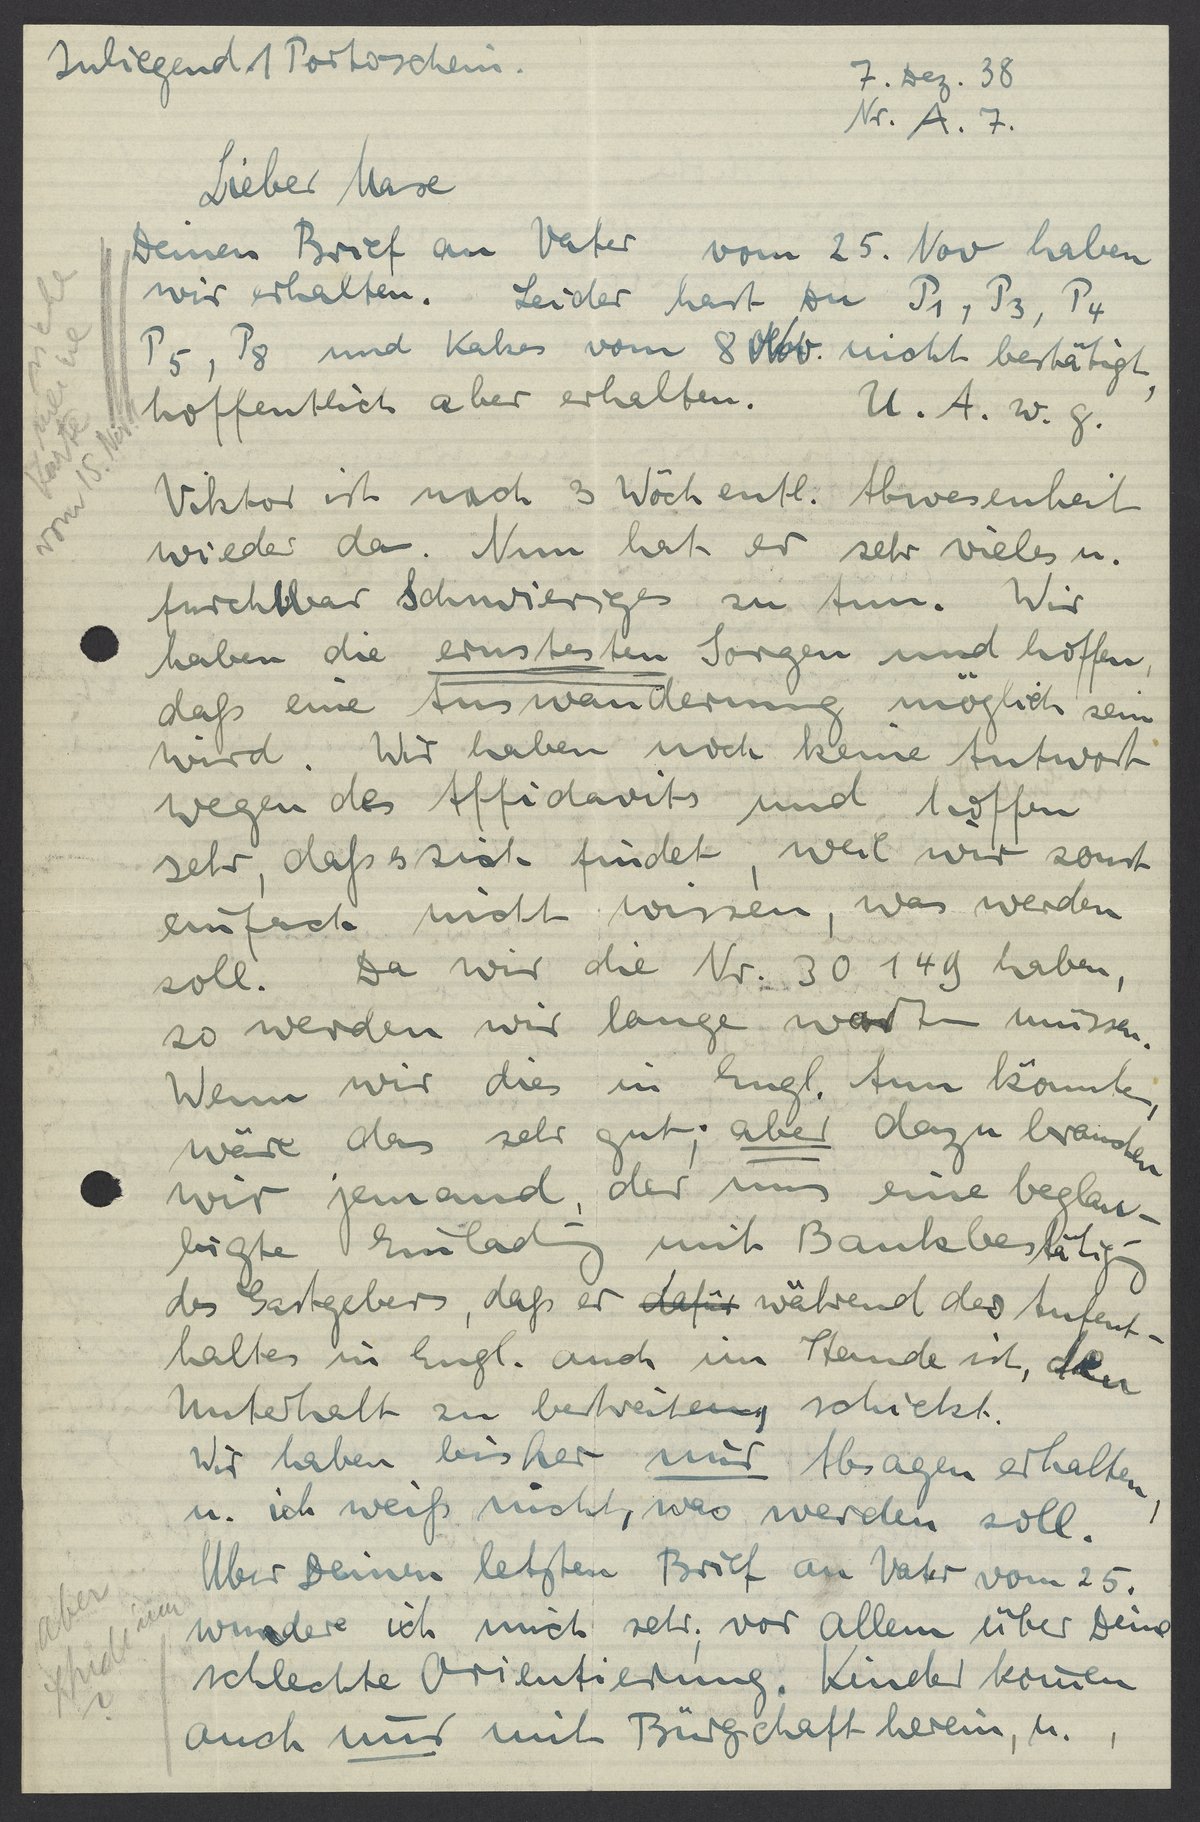 Inliegend 1 Portoschein.
7. Dez. 38
Nr. A. 7.
Lieber Mase
Deinen Brief an Vater vom 25. Nov haben
wir erhalten. Leider hast Du P1, P3, P4
P5, P8 und Kakes vom 8 Nov. nicht bestätigt,
hoffentlich aber erhalten. U. A. w. g.
Karte
vom 15. Nov.
Viktor ist nach 3 Wöchentl. Abwesenheit
wieder da. Nun hat er sehr vieles u.
furchtbar Schwieriges zu tun. Wir
haben die ernstesten Sorgen und hoffen,
daß eine Auswanderung möglich sein
wird. Wir haben noch keine Antwort
wegen des Affidavits und hoffen
sehr, daß es sich findet, weil wir sonst
einfach nicht wissen, was werden
soll. Da wir die Nr. 30 149 haben,
so werden wir lange warten müssen.
Wenn wir dies in Engl. tun könnten,
wäre das sehr gut; aber dazu brauchen
wir jemand, der uns eine beglau-
bigte Einladung mit Bankbestätigung
des Gastgebers, daß er dafür während des Aufent-
haltes in Engl. auch im Stande ist, den
Unterhalt zu bestreiten, schickt.
Wir haben bisher nur Absagen erhalten,
u. ich weiß nicht, was werden soll.
Über Deinen letzten Brief an Vater vom 25.
wundere ich mich sehr, vor allem über Deine
schlechte Orientierung. Kinder kommen
auch nur mit Bürgschaft herein, u.
aber